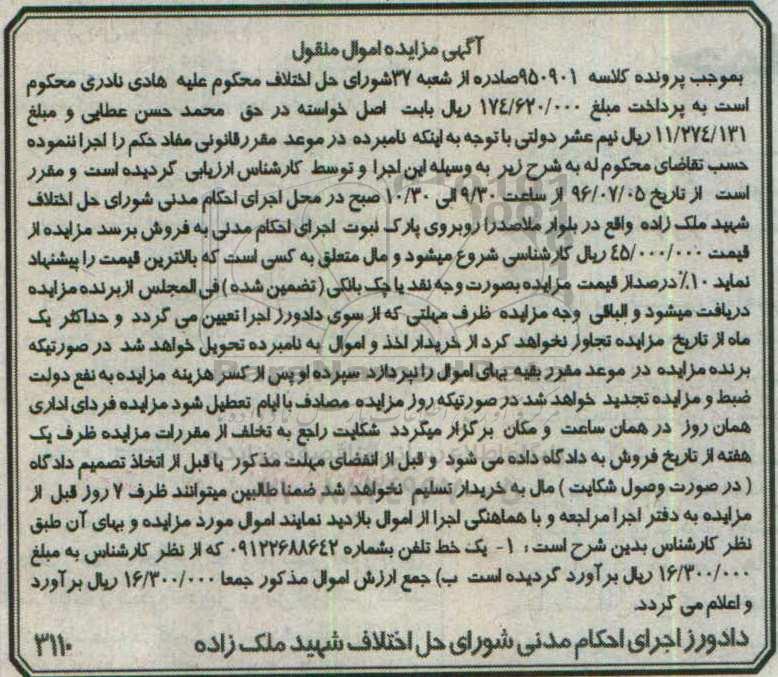 آگهی مزایده اموال منقول
بموجب پرونده کلاسه ۹۵۰۹۰۱صادره از شعبه ۳۷شورای حل اختلاف محکوم علیه هادی نادری محکوم
است به پرداخت مبلغ ۱۷٤/۶۲۰/۰۰۰ ریال بابت اصل خواسته در حق محمد حسن عطایی و مبلغ
۱۱/۲۷٤/۱۳۱ ریال نیم عشر دولتی با توجه به اینکه نامبرده در موعد مقرر قانونی مفاد حکم را اجرا ننموده
حسب تقاضای محکوم له به شرح زیر به وسیله این اجرا و توسط کارشناس ارزیابی گردیده است و مقرر
است از تاریخ ۹۶/۰۷/۰۵ از ساعت ۹/۳۰ الی ۱۰/۳۰ صبح در محل اجرای احکام مدنی شورای حل اختلاف
شهید ملک زاده واقع در بلوار ملاصدرا روبروی پارک نبوت اجرای احکام مدنی به فروش برسد مزایده از
قیمت ٤۵/۰۰۰/۰۰۰ ریال کارشناسی شروع میشود و مال متعلق به کسی است که بالاترین قیمت را پیشنهاد
نماید ۱۰٪ درصد از قیمت مزایده بصورت وجه نقد یا چک بانکی ( تضمین شده ) فی المجلس ازبرنده مزایده
دریافت میشود و الباقی وجه مزایده ظرف مهلتی که از سوی دادورز اجرا تعیین می گردد و حداکثر یک
ماه از تاریخ مزایده تجاوز نخواهد کرد از خریدار اخذ و اموال به نامبرده تحویل خواهد شد در صورتیکه
برنده مزایده در موعد مقرر بقیه بهای اموال را نپردازد سپرده او پس از کسر هزینه مزایده به نفع دولت
ضبط و مزایده تجدید خواهد شد در صورتیکه روز مزایده مصادف با ایام تعطیل شود مزایده فردای اداری
همان روز در همان ساعت و مکان برگزار میگردد شکایت راجع به تخلف از مقررات مزایده ظرف یک
هفته از تاریخ فروش به دادگاه داده می شود و قبل از انقضای مهلت مذکور یا قبل از اتخاذ تصمیم دادگاه
( در صورت وصول شکایت ) مال به خریدار تسلیم نخواهد شد ضمنا طالبین میتوانند ظرف ۷ روز قبل از
مزایده به دفتر اجرا مراجعه و با هماهنگی اجرا از اموال بازدید نمایند اموال مورد مزایده و بهای آن طبق
نظر کارشناس بدین شرح است : ۱- یک خط تلفن بشماره ۰۹۱۲۲۶۸۸۶٤۲ که از نظر کارشناس به مبلغ
۱۶/۳۰۰/۰۰۰ ریال برآورد گردیده است ب) جمع ارزش اموال مذکور جمعا ۱۶/۳۰۰/۰۰۰ ریال برآورد
و اعلام می گردد.
دادورز اجرای احکام مدنی شورای حل اختلاف شهید ملک زاده ۳۱۱۰